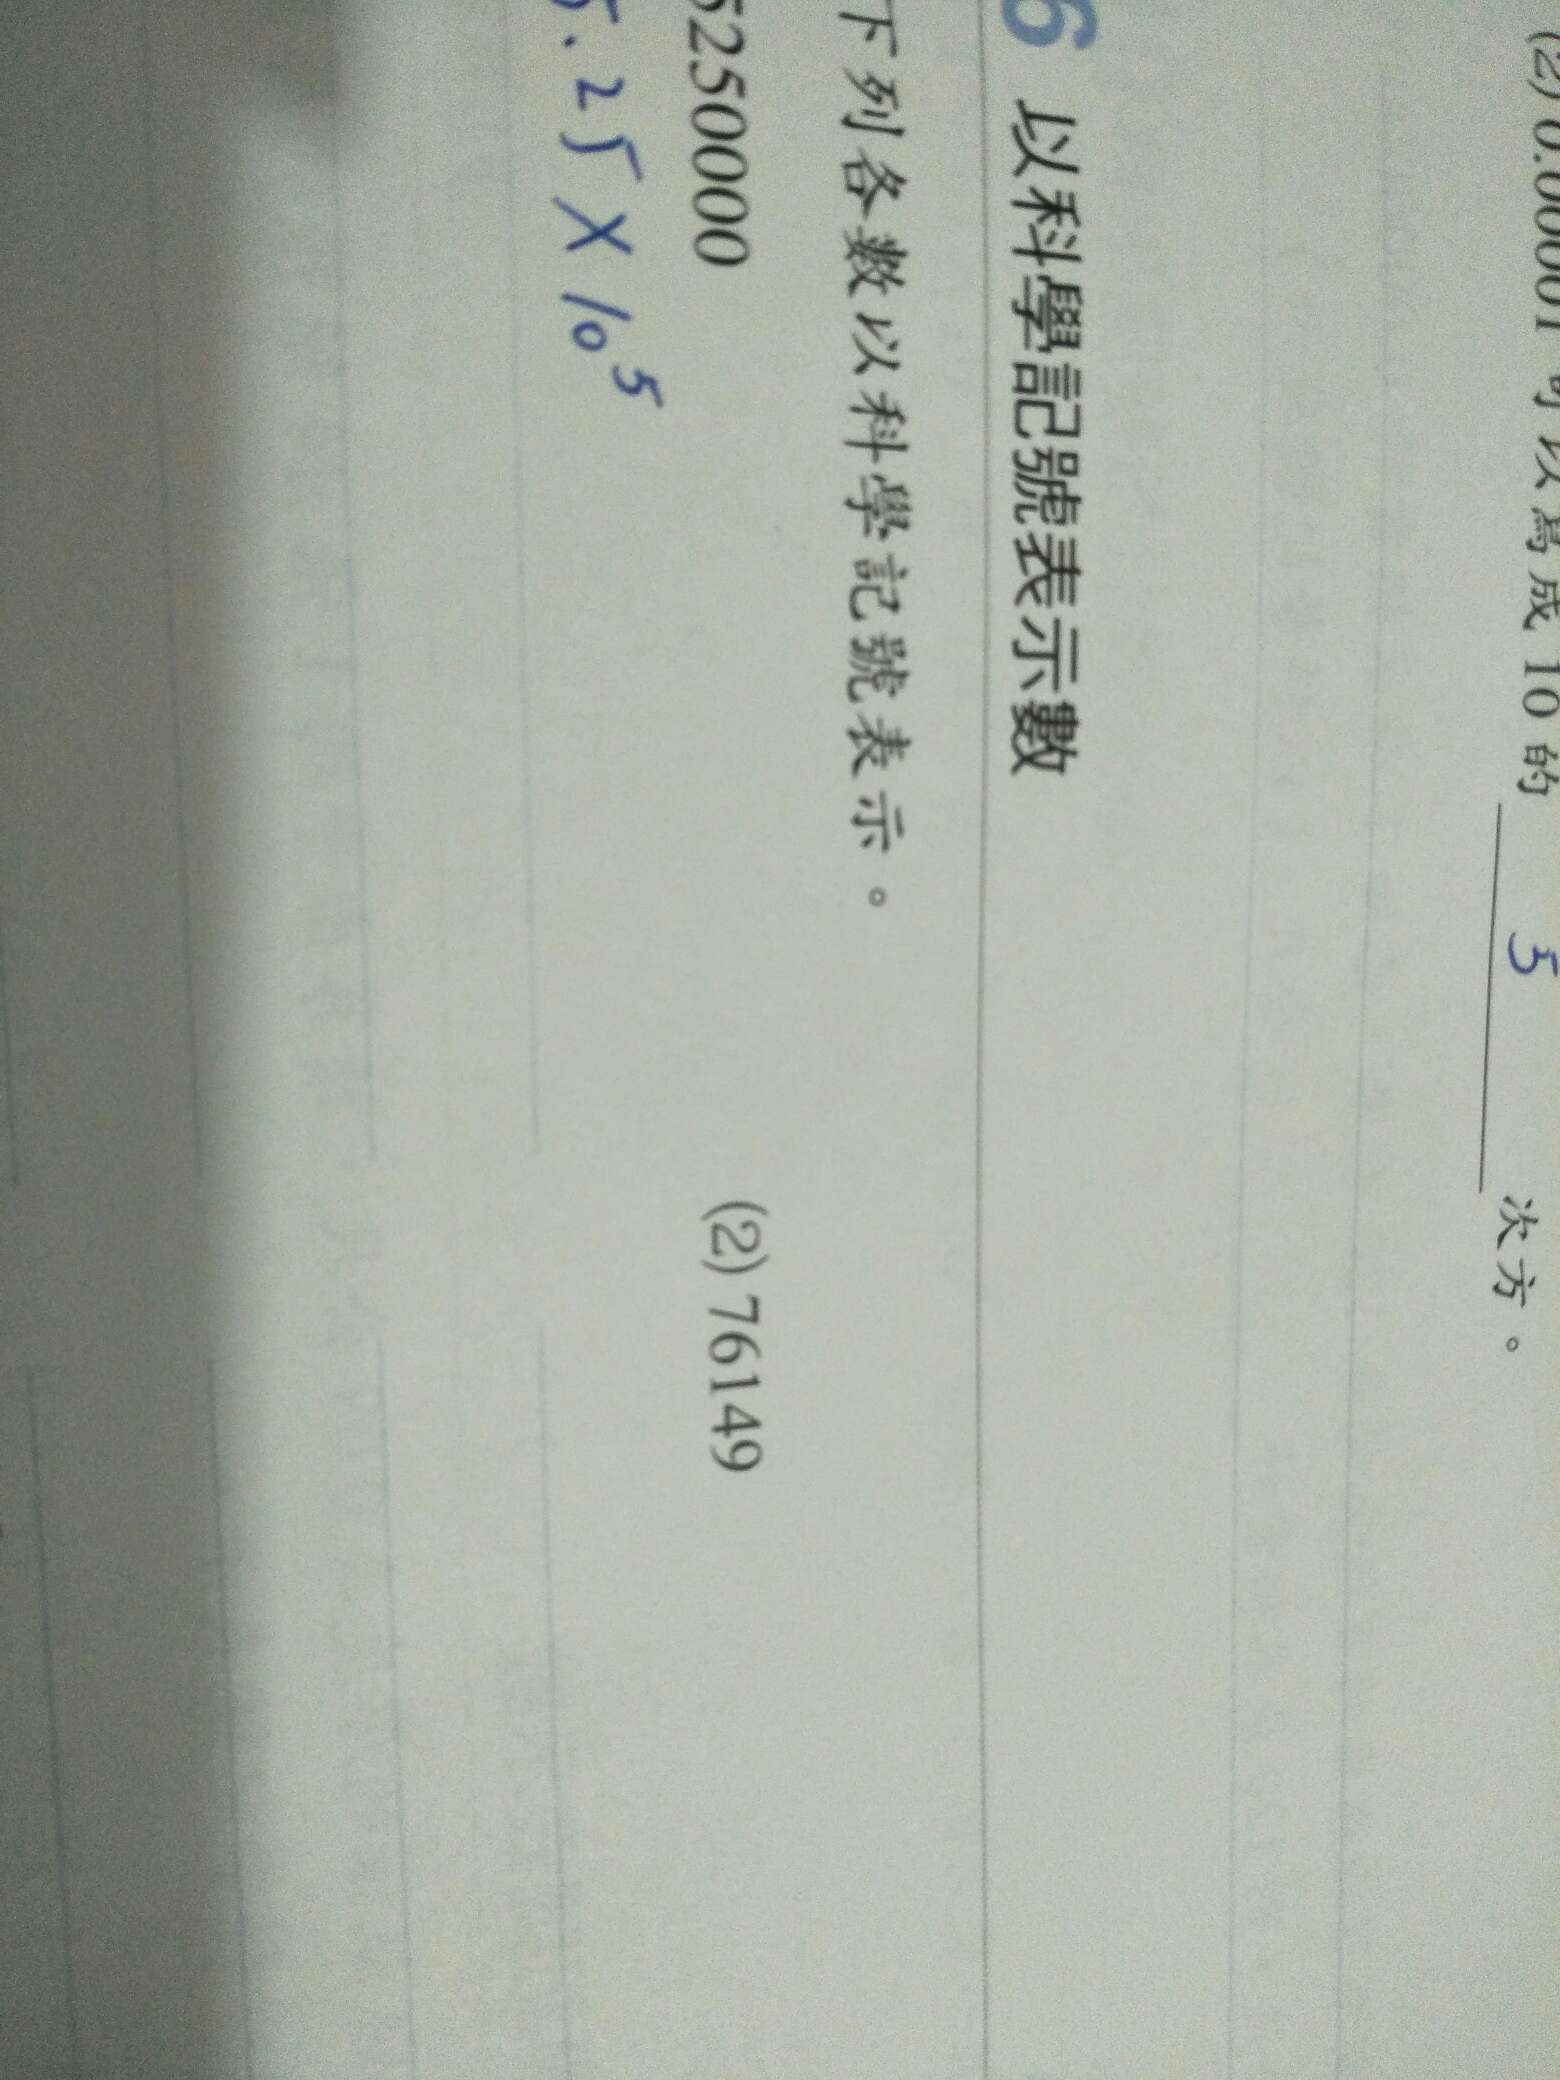 (2) 0.00001 可以寫成 10 的 5 次方。
6 以科學記號表示數
下列各數以科學記號表示。
5250000 (2) 76149
5.25 X 10⁵